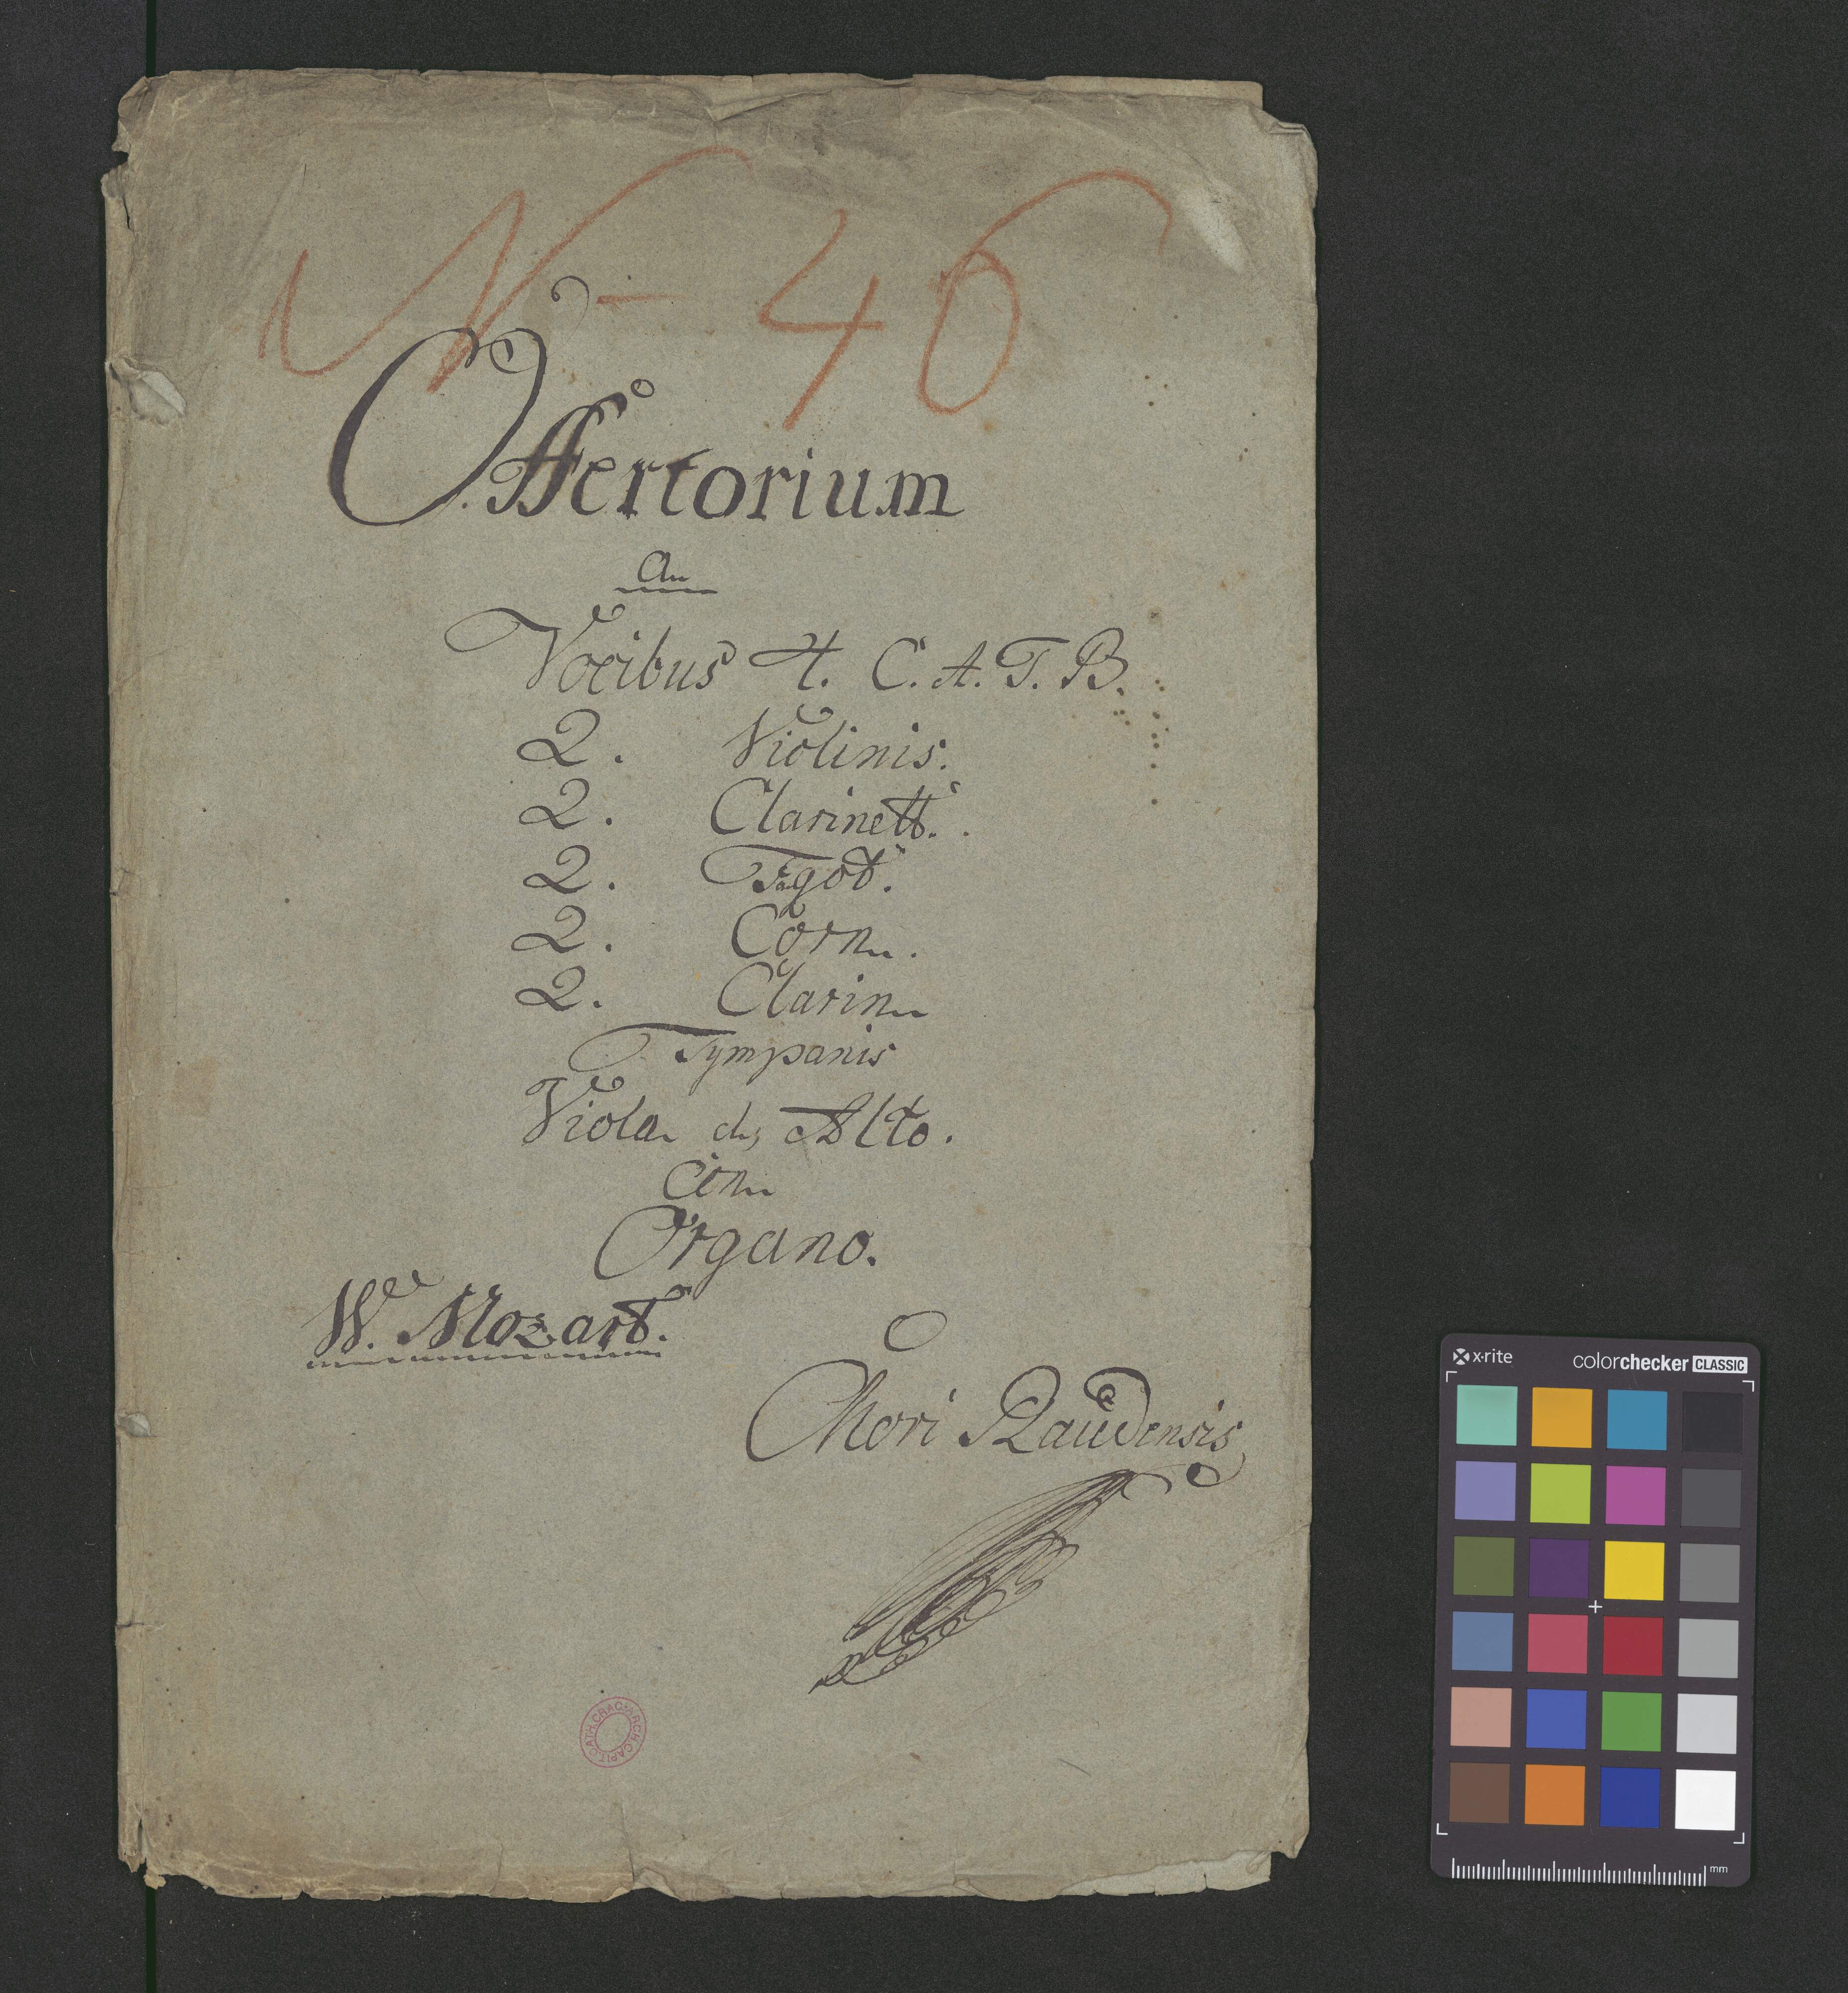 N– 46
Offertorium
a
Vocibus 4. C. A. T. B.
2. Violinis.
2. Clarinett.
2. Fagot.
2. Corn
2. Clarin
Tympanis
Viola de Alto.
Con
Organo.
W. Mozart.
Chori Raudensis
ARCH. CAPIT. CATH. CRAC.
x·rite colorchecker CLASSIC
mm